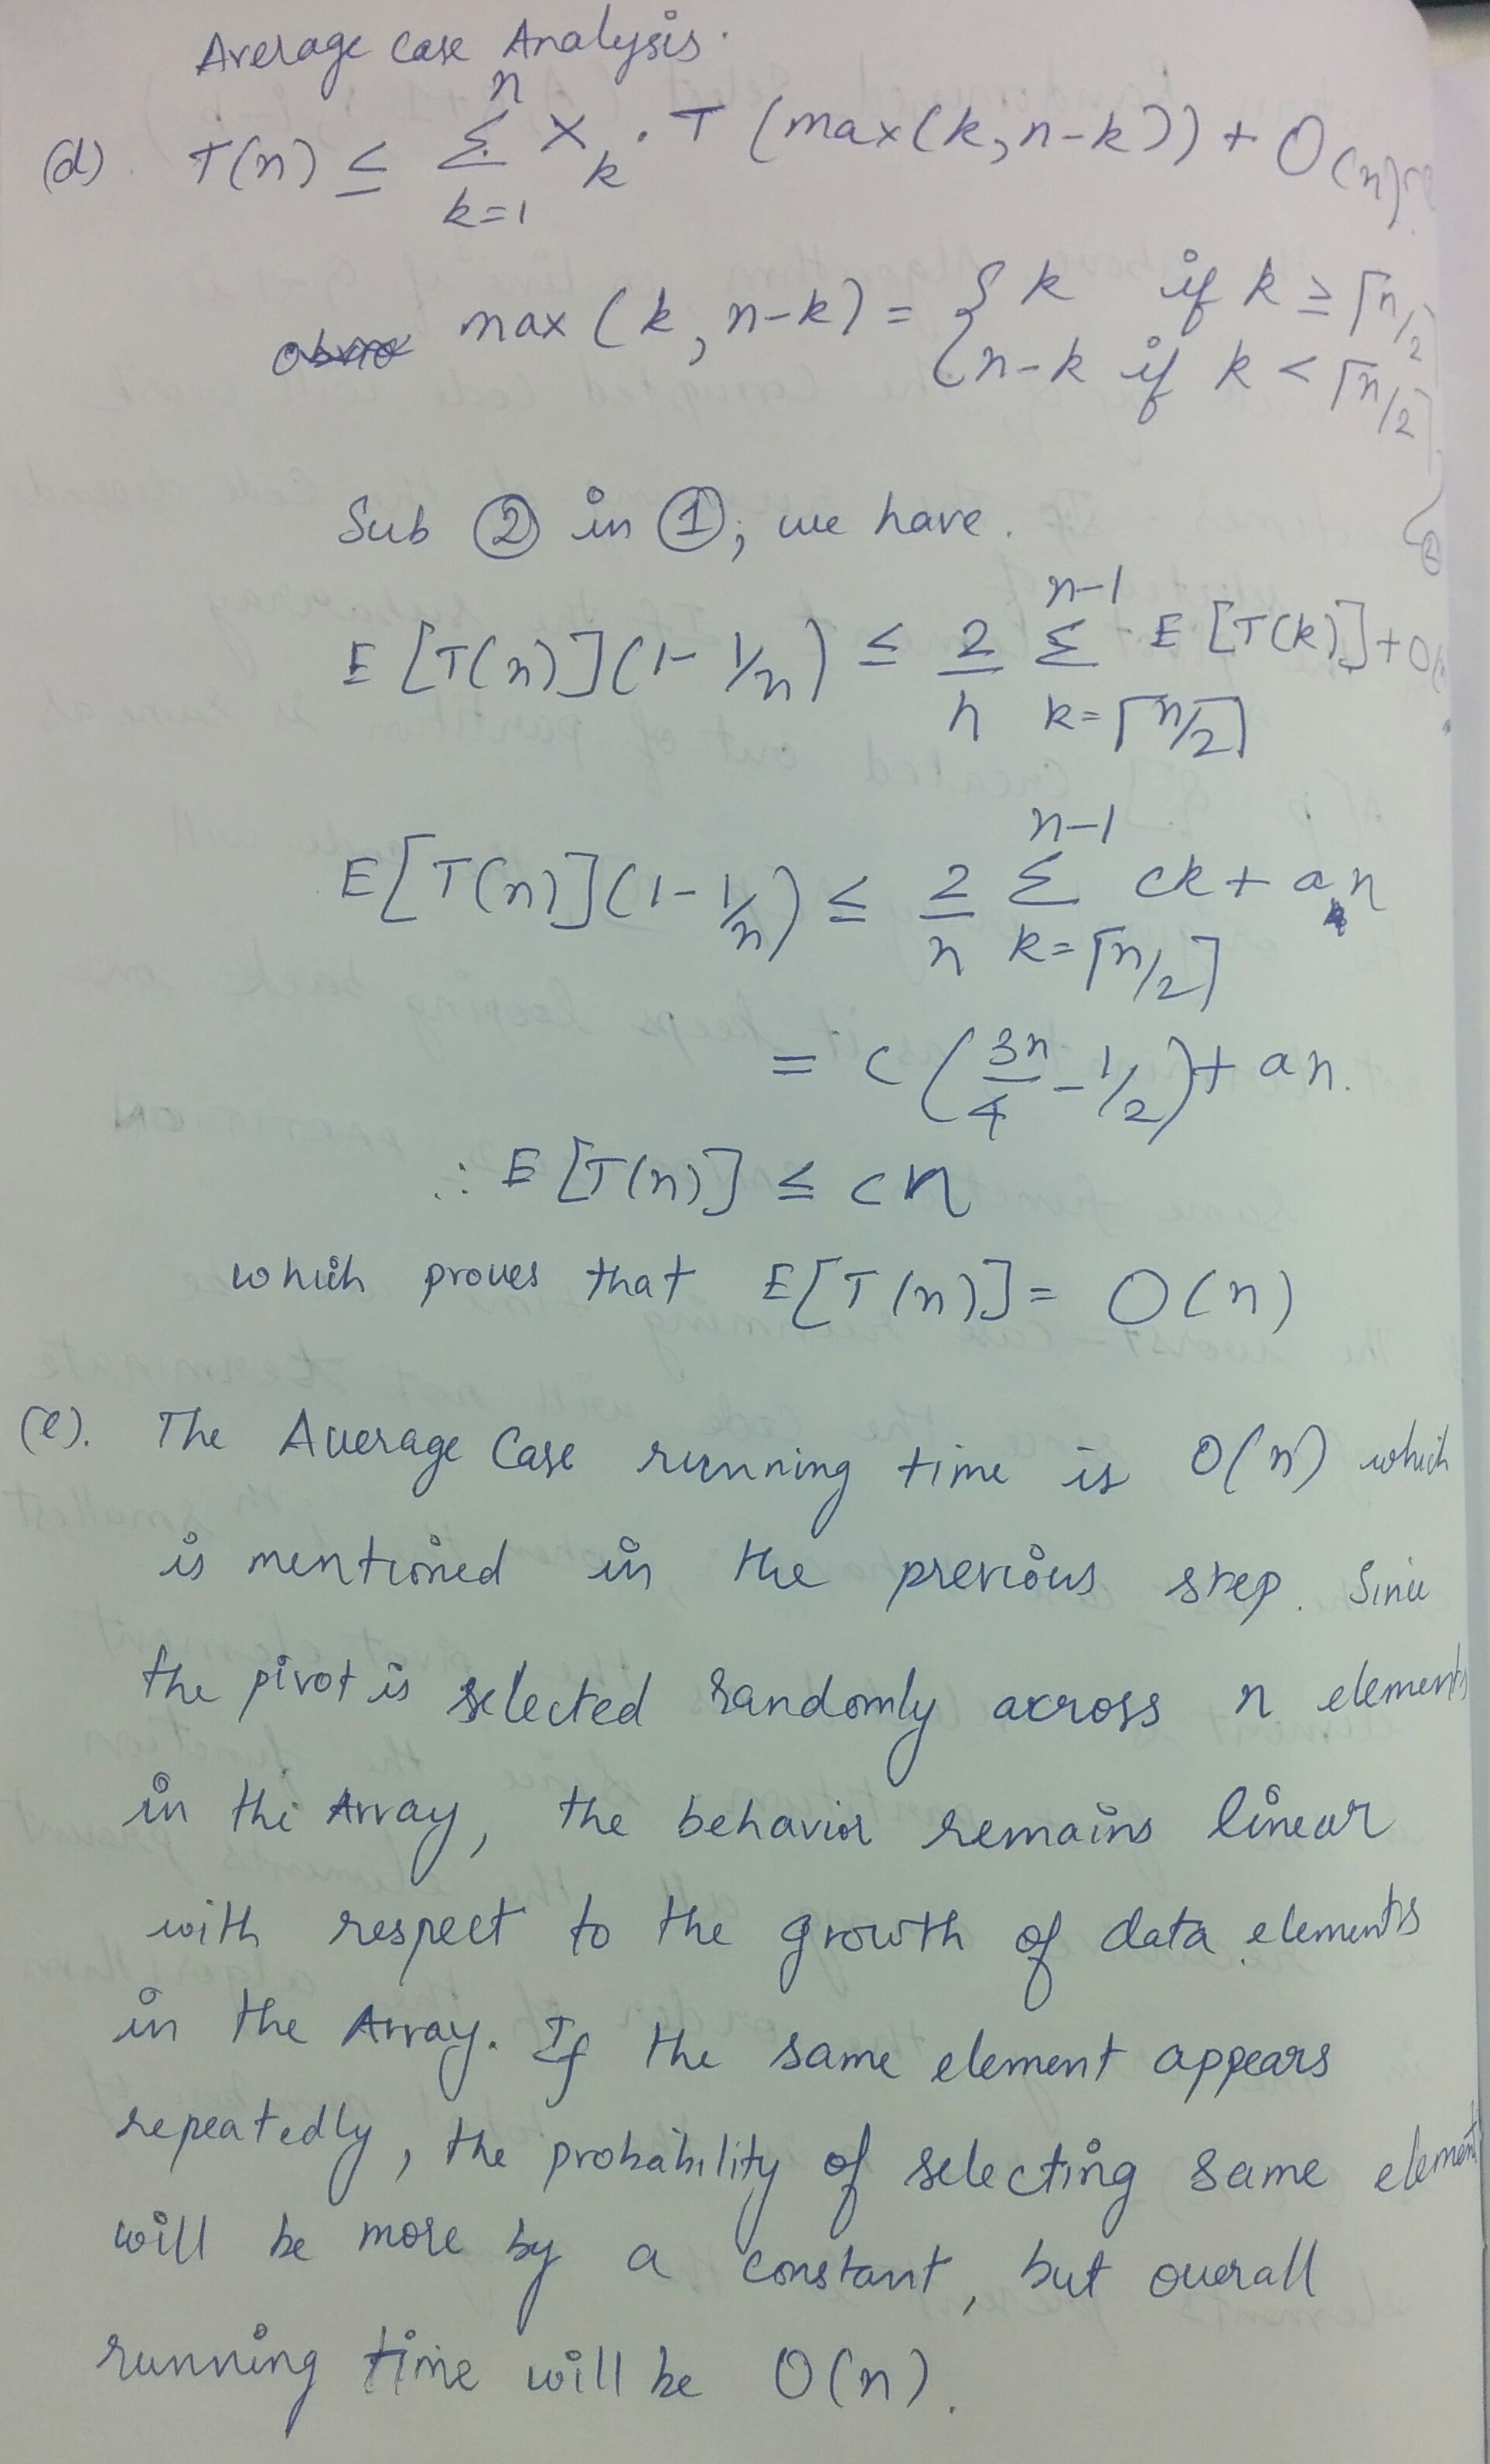 Average Case Analysis.
(d). T(n) ≤ Σ_{k=1}^{n} X_k · T(max(k, n-k)) + O(n)
max(k, n-k) = { k if k ≥ ⌈n/2⌉
{ n-k if k < ⌈n/2⌉
②
Sub ② in ①, we have.
E[T(n)](1- 1/n) ≤ 2/n Σ_{k=⌈n/2⌉}^{n-1} E[T(k)] + O(
E[T(n)](1- 1/n) ≤ 2/n Σ_{k=⌈n/2⌉}^{n-1} ck + an
= c(3n/4 - 1/2) + an.
∴ E[T(n)] ≤ cn
which proves that E[T(n)] = O(n)
(e). The Average Case running time is O(n) which
is mentioned in the previous step. Since
the pivot is selected randomly across n elements
in the Array, the behavior remains linear
with respect to the growth of data elements
in the Array. If the same element appears
repeatedly, the probability of selecting same element
will be more by a constant, but overall
running time will be O(n).